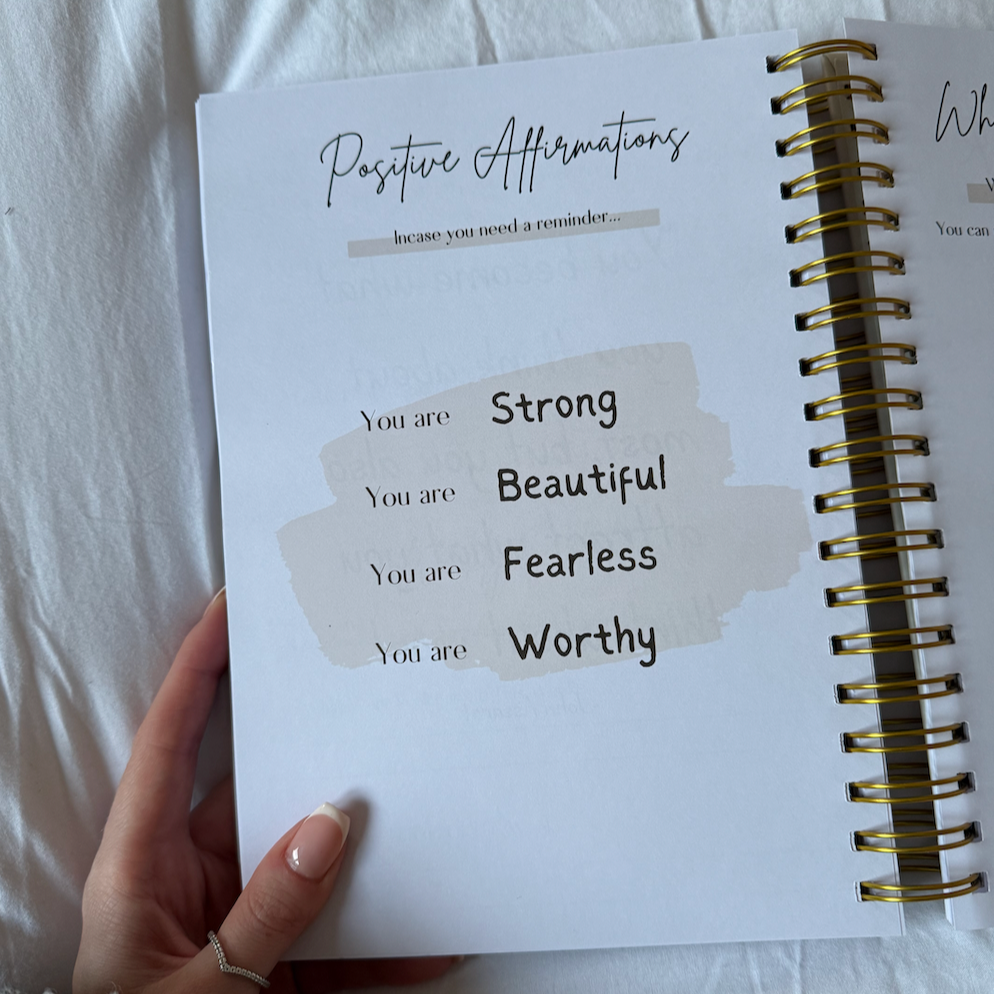 Positive Affirmations
Incase you need a reminder...
You are Strong
You are Beautiful
You are Fearless
You are Worthy
You can